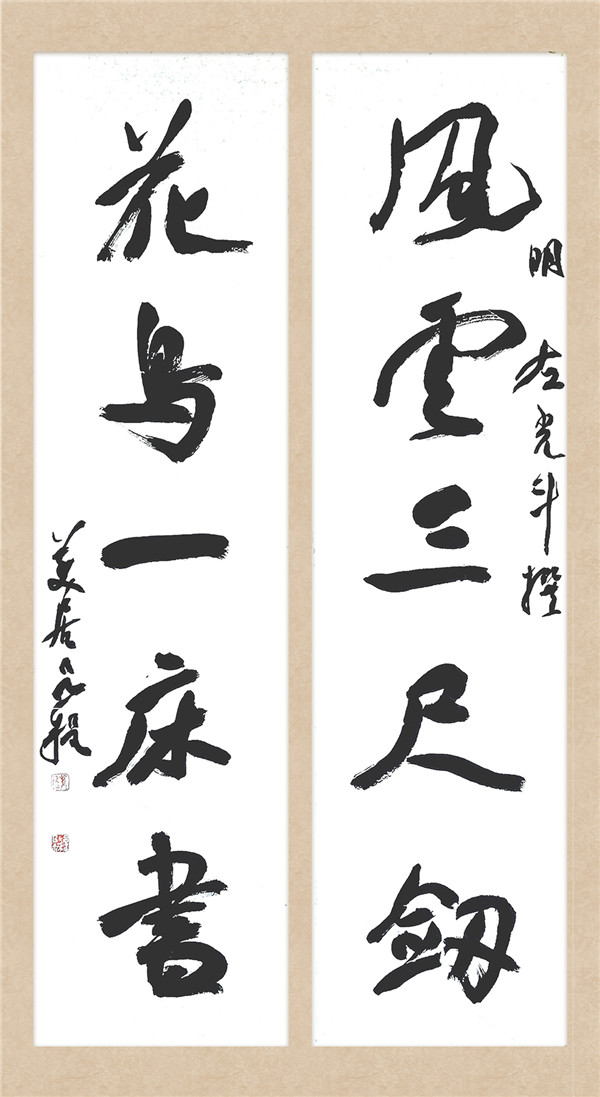 風雲三尺劒
明 左光斗撰
花鳥一床書